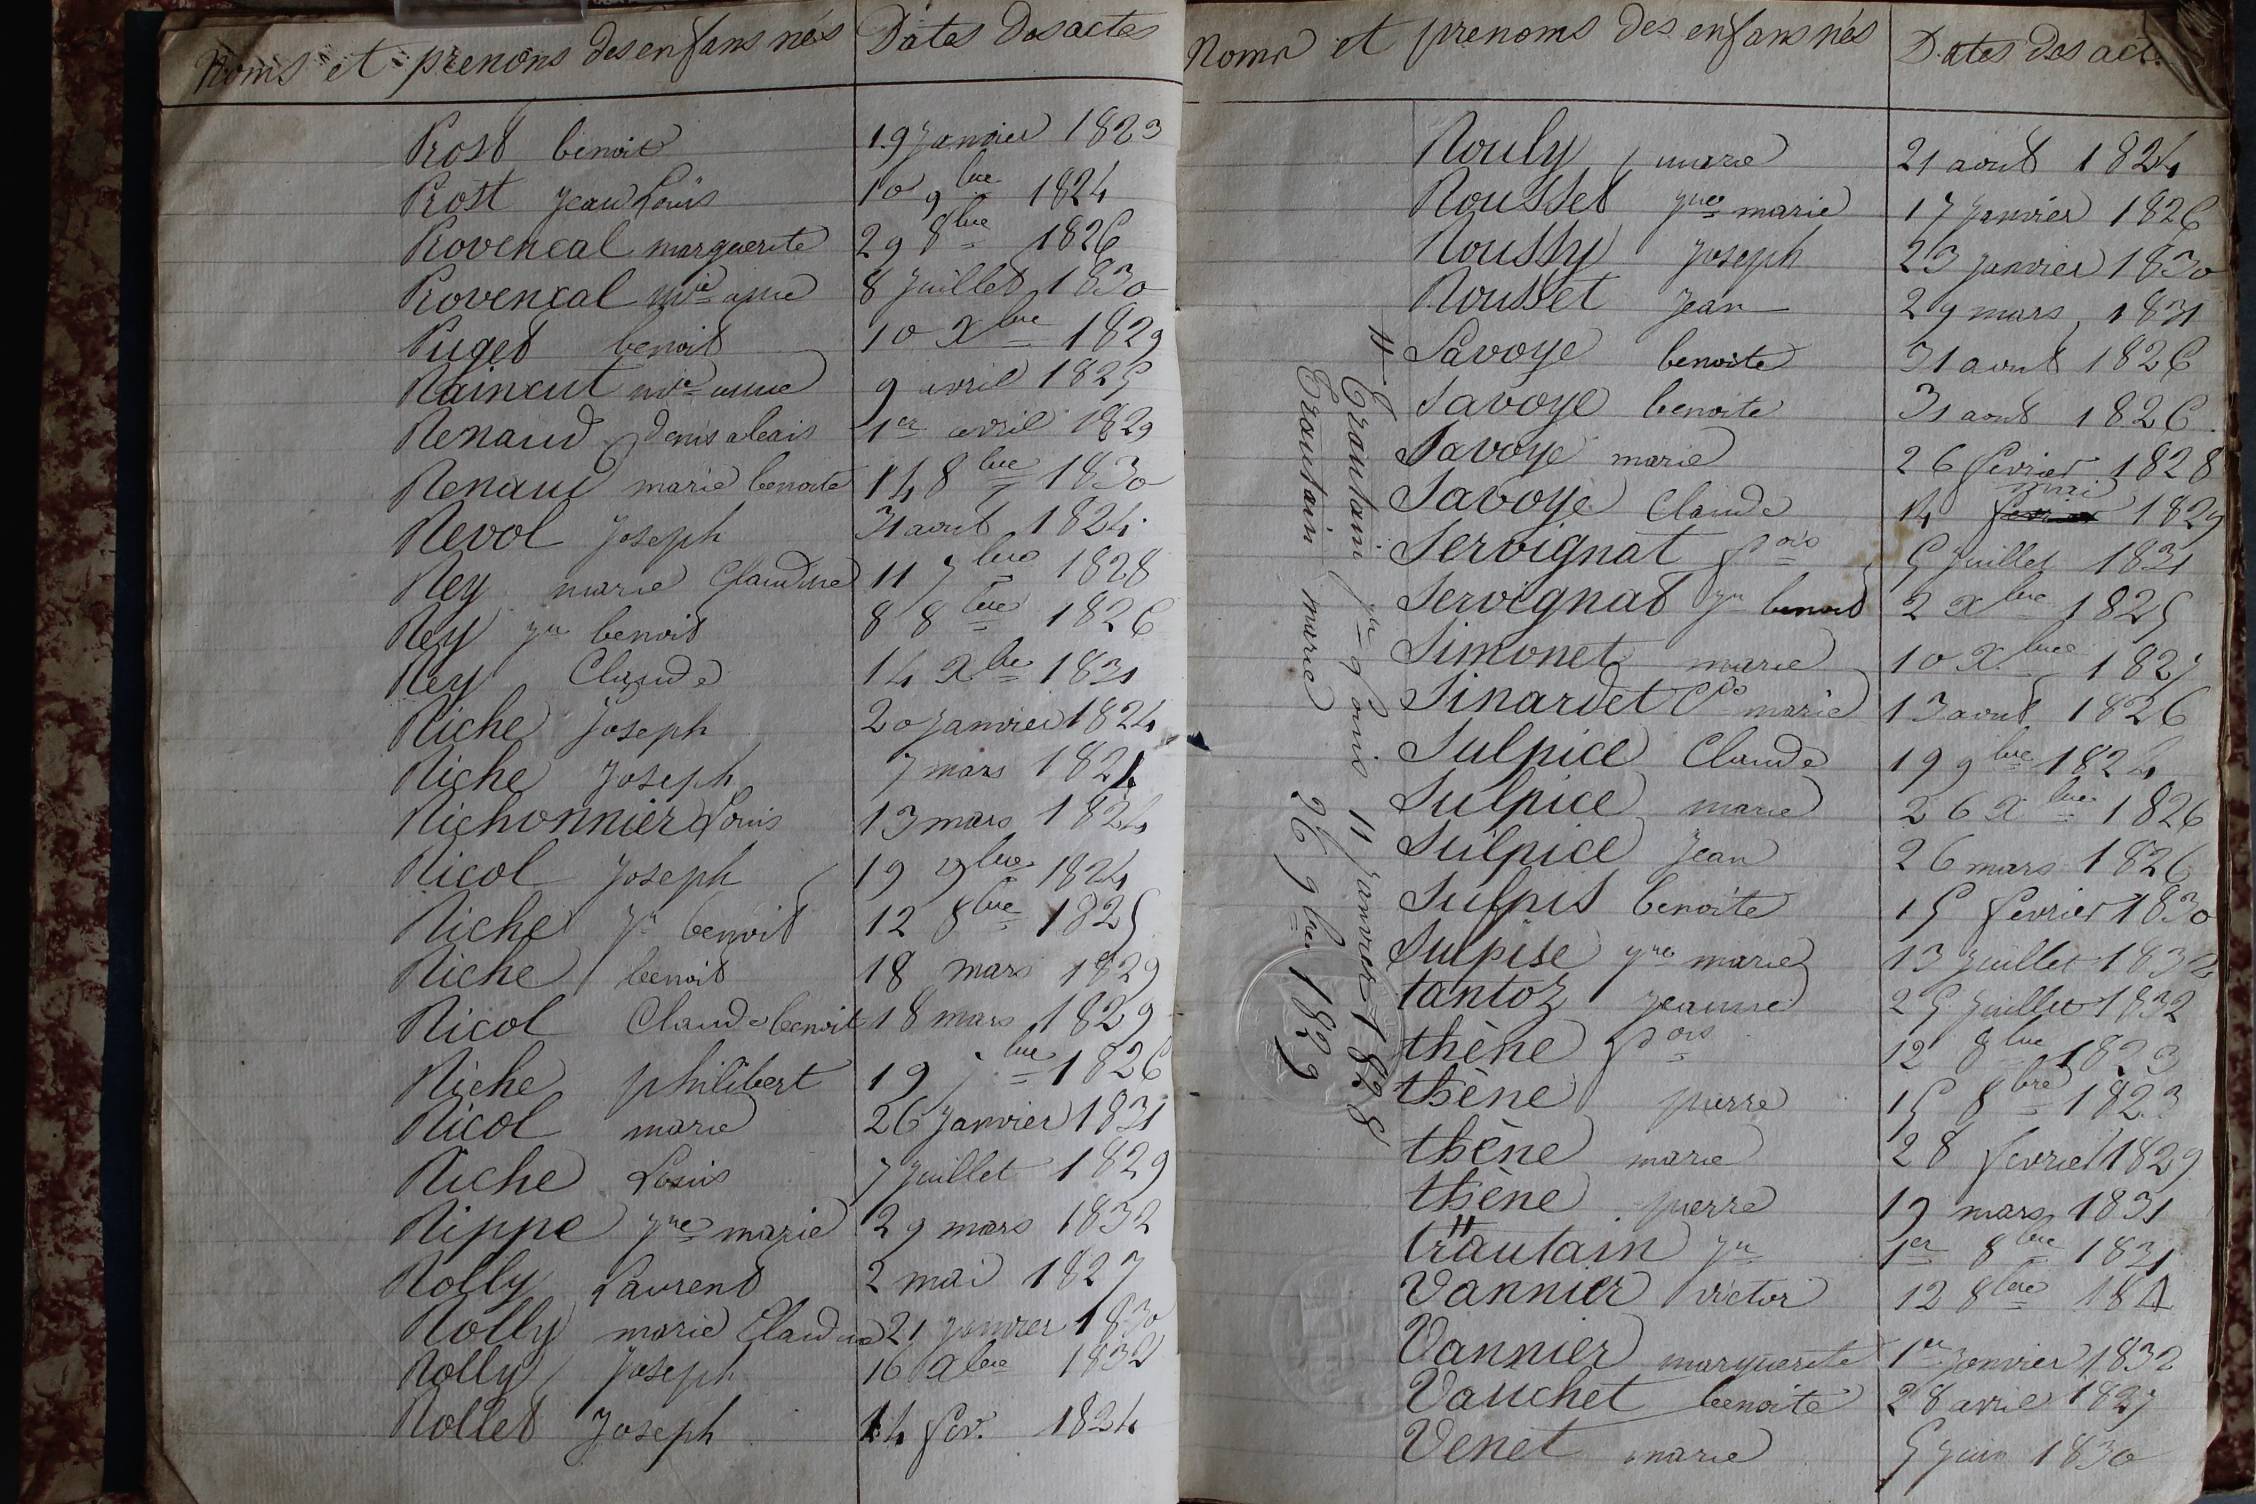 Noms et prenons des enfans nés Dates des actes
Prost benoit 19 Janvier 1823
Prost Jean Louis 10 9bre 1824
Provencal marguerite 29 8bre 1826
Provencal mie anne 8 Juillet 1830
Puget benoit 10 Xbre 1829
Raincut mie anne 9 avril 1825
Renaud Denis 1er avril 1829
Renaud marie benoite 14 8bre 1830
Revol Joseph 31 aout 1824
Rey marie Claudine 11 7bre 1828
Rey jn benoit 8 8bre 1826
Rey Claude 14 Xbre 1831
Riche Joseph 20 Janvier 1824
Riche Joseph 7 mars 1824
Richonnier Louis 13 mars 1824
Ricol Joseph 19 9bre 1824
Riche Jn benoit 12 8bre 1825
Riche benoit 18 mars 1829
Ricol Claude benoit 18 mars 1829
Riche philibert 19 7bre 1826
Ricol marie 26 Janvier 1831
Riche Louis 7 Juillet 1829
Rippe jne marie 29 mars 1832
Rolly Laurend 2 mai 1827
Rolly marie Claudine 21 Janvier 1830
Rolly Joseph 16 Xbre 1832
Rollet Joseph 14 fev. 1824
Noms et prenoms des enfans nés Dates des act.
Rouly marie 21 aout 1824
Rousset jne marie 17 Janvier 1826
Roussy Joseph 23 Janvier 1830
Rousset Jean 29 mars 1831
Savoye benoite 31 aout 1826
Savoye benoite 31 aout 1826
Savoye marie 26 fevrier 1828
Savoye Claude 14 fevrier mai 1829
Servignat fois 5 Juillet 1831
Servignat jn benoit 2 Xbre 1825
Simonet marie 10 Xbre 1827
Sinardet Cde marie 13 aout 1826
Sulpice Claude 19 9bre 1824
Sulpice marie 26 Xbre 1826
Sulpice Jean 26 mars 1826
Sulpis benoite 15 fevrier 1830
Sulpise jne marie 13 Juillet 1832
tantoz jeanne 25 Juillet 1832
thène fois 12 8bre 1823
thène pierre 15 8bre 1823
thène marie 28 fevrier 1829
thène pierre 19 mars 1831
trautain jn 1er 8bre 1831
Vannier victor 12 8bre
Vannier marguerite 1er janvier 1832
Vauchet benoite 28 avril 1827
Venet marie 5 Juin 1830
Trautain jn Louis 11 Janvier 1828
Trautain marie 26 9bre 1829